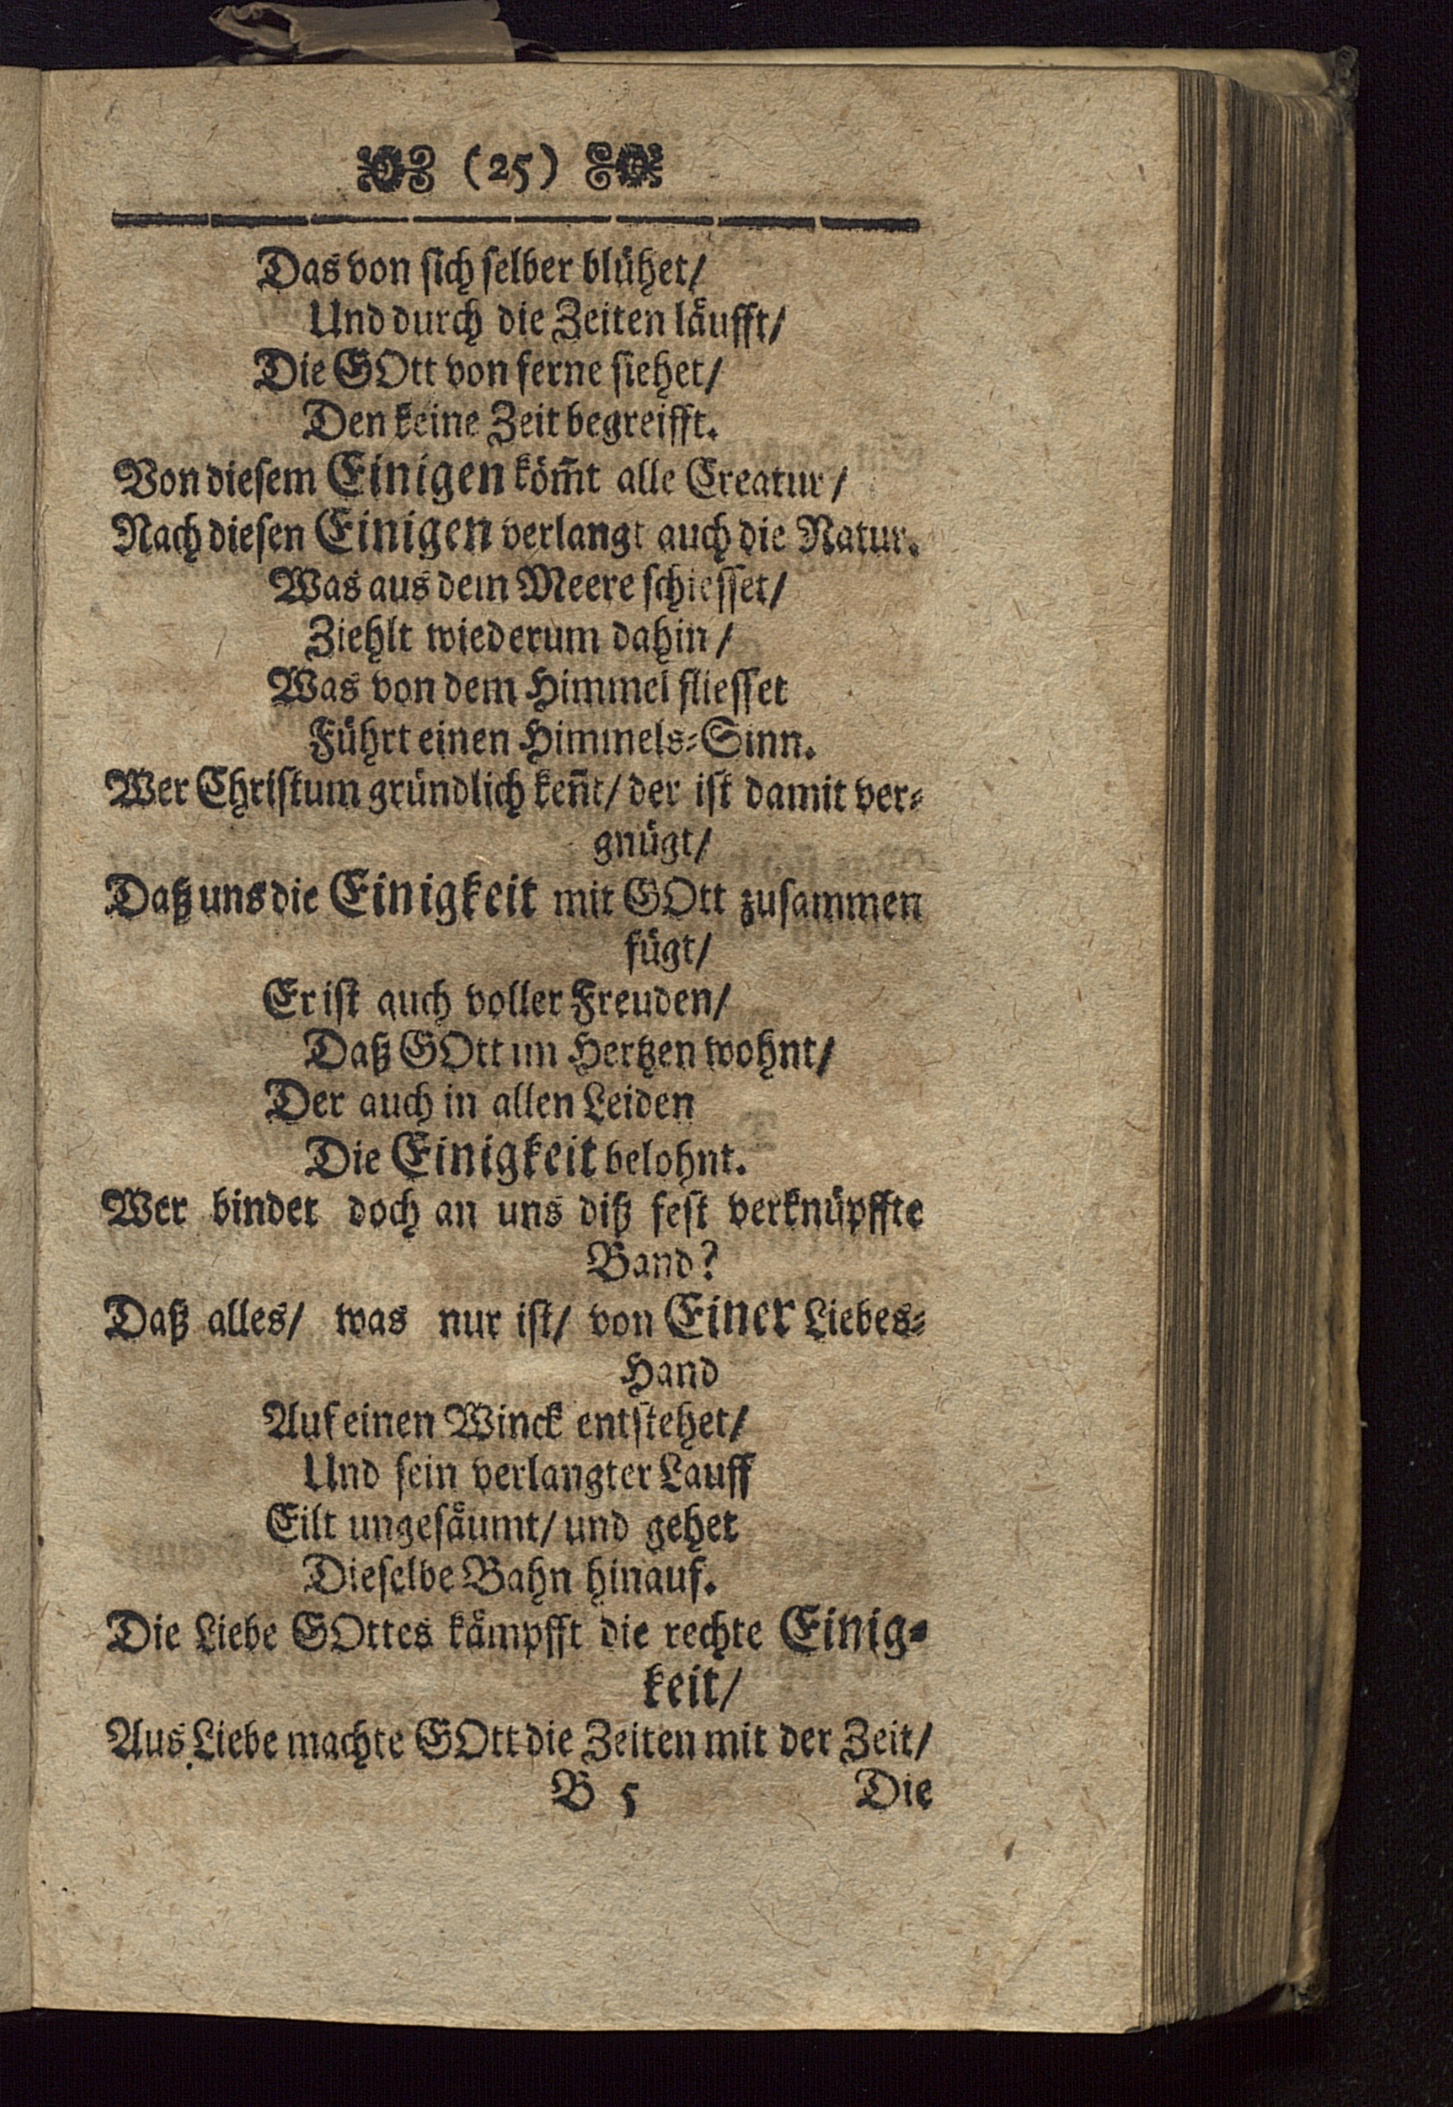 (25)
Das von sich selber blühet/
Und durch die Zeiten läufft/
Die GOtt von ferne siehet/
Den keine Zeit begreifft.
Von diesem Einigen köm̃t alle Creatur/
Nach diesen Einigen verlangt auch die Natur.
Was aus dem Meere schiesset/
Ziehlt wiederum dahin/
Was von dem Himmel fliesset
Führt einen Himmels-Sinn.
Wer Christum gründlich keñt/ der ist damit ver-
gnügt/
Daß uns die Einigkeit mit GOtt zusammen
fügt/
Er ist auch voller Freuden/
Daß GOtt im Hertzen wohnt/
Der auch in allen Leiden
Die Einigkeit belohnt.
Wer bindet doch an uns diß fest verknüpffte
Band?
Daß alles/ was nur ist/ von Einer Liebes-
Hand
Auf einen Winck entstehet/
Und sein verlangter Lauff
Eilt ungesäumt/ und gehet
Dieselbe Bahn hinauf.
Die Liebe GOttes kämpfft die rechte Einig-
keit/
Aus Liebe machte GOtt die Zeiten mit der Zeit/
B 5 Die